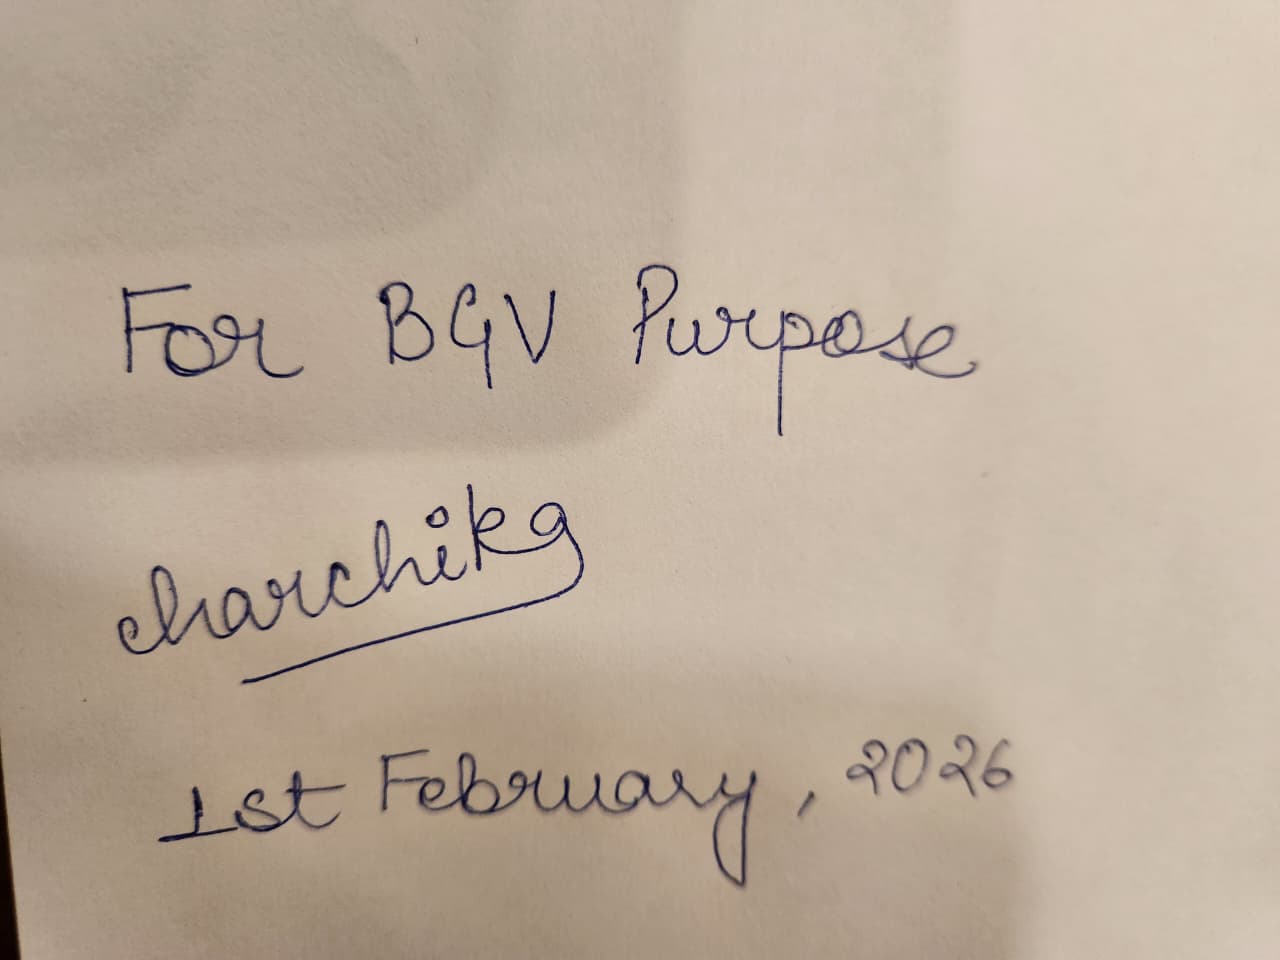 For BGV Purpose
charchika
1st February, 2026